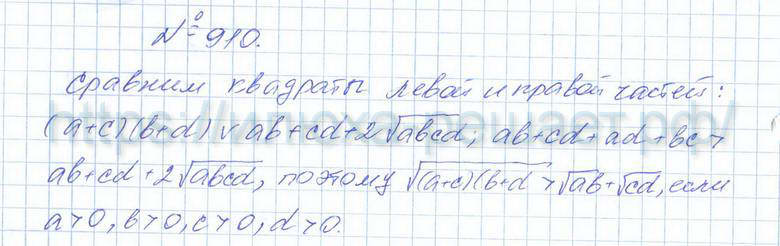 № 910.
Сравним квадраты левой и правой частей:
(a+c)(b+d) ∨ ab+cd+2√abcd; ab+cd+ad+bc >
ab+cd+2√abcd, поэтому √(a+c)(b+d > √ab+√cd, если
a>0, b>0, c>0, d>0.